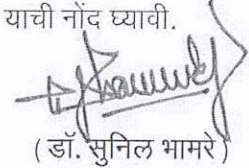 याची नोंद घ्यावी.
(डॉ. सुनिल भामरे)